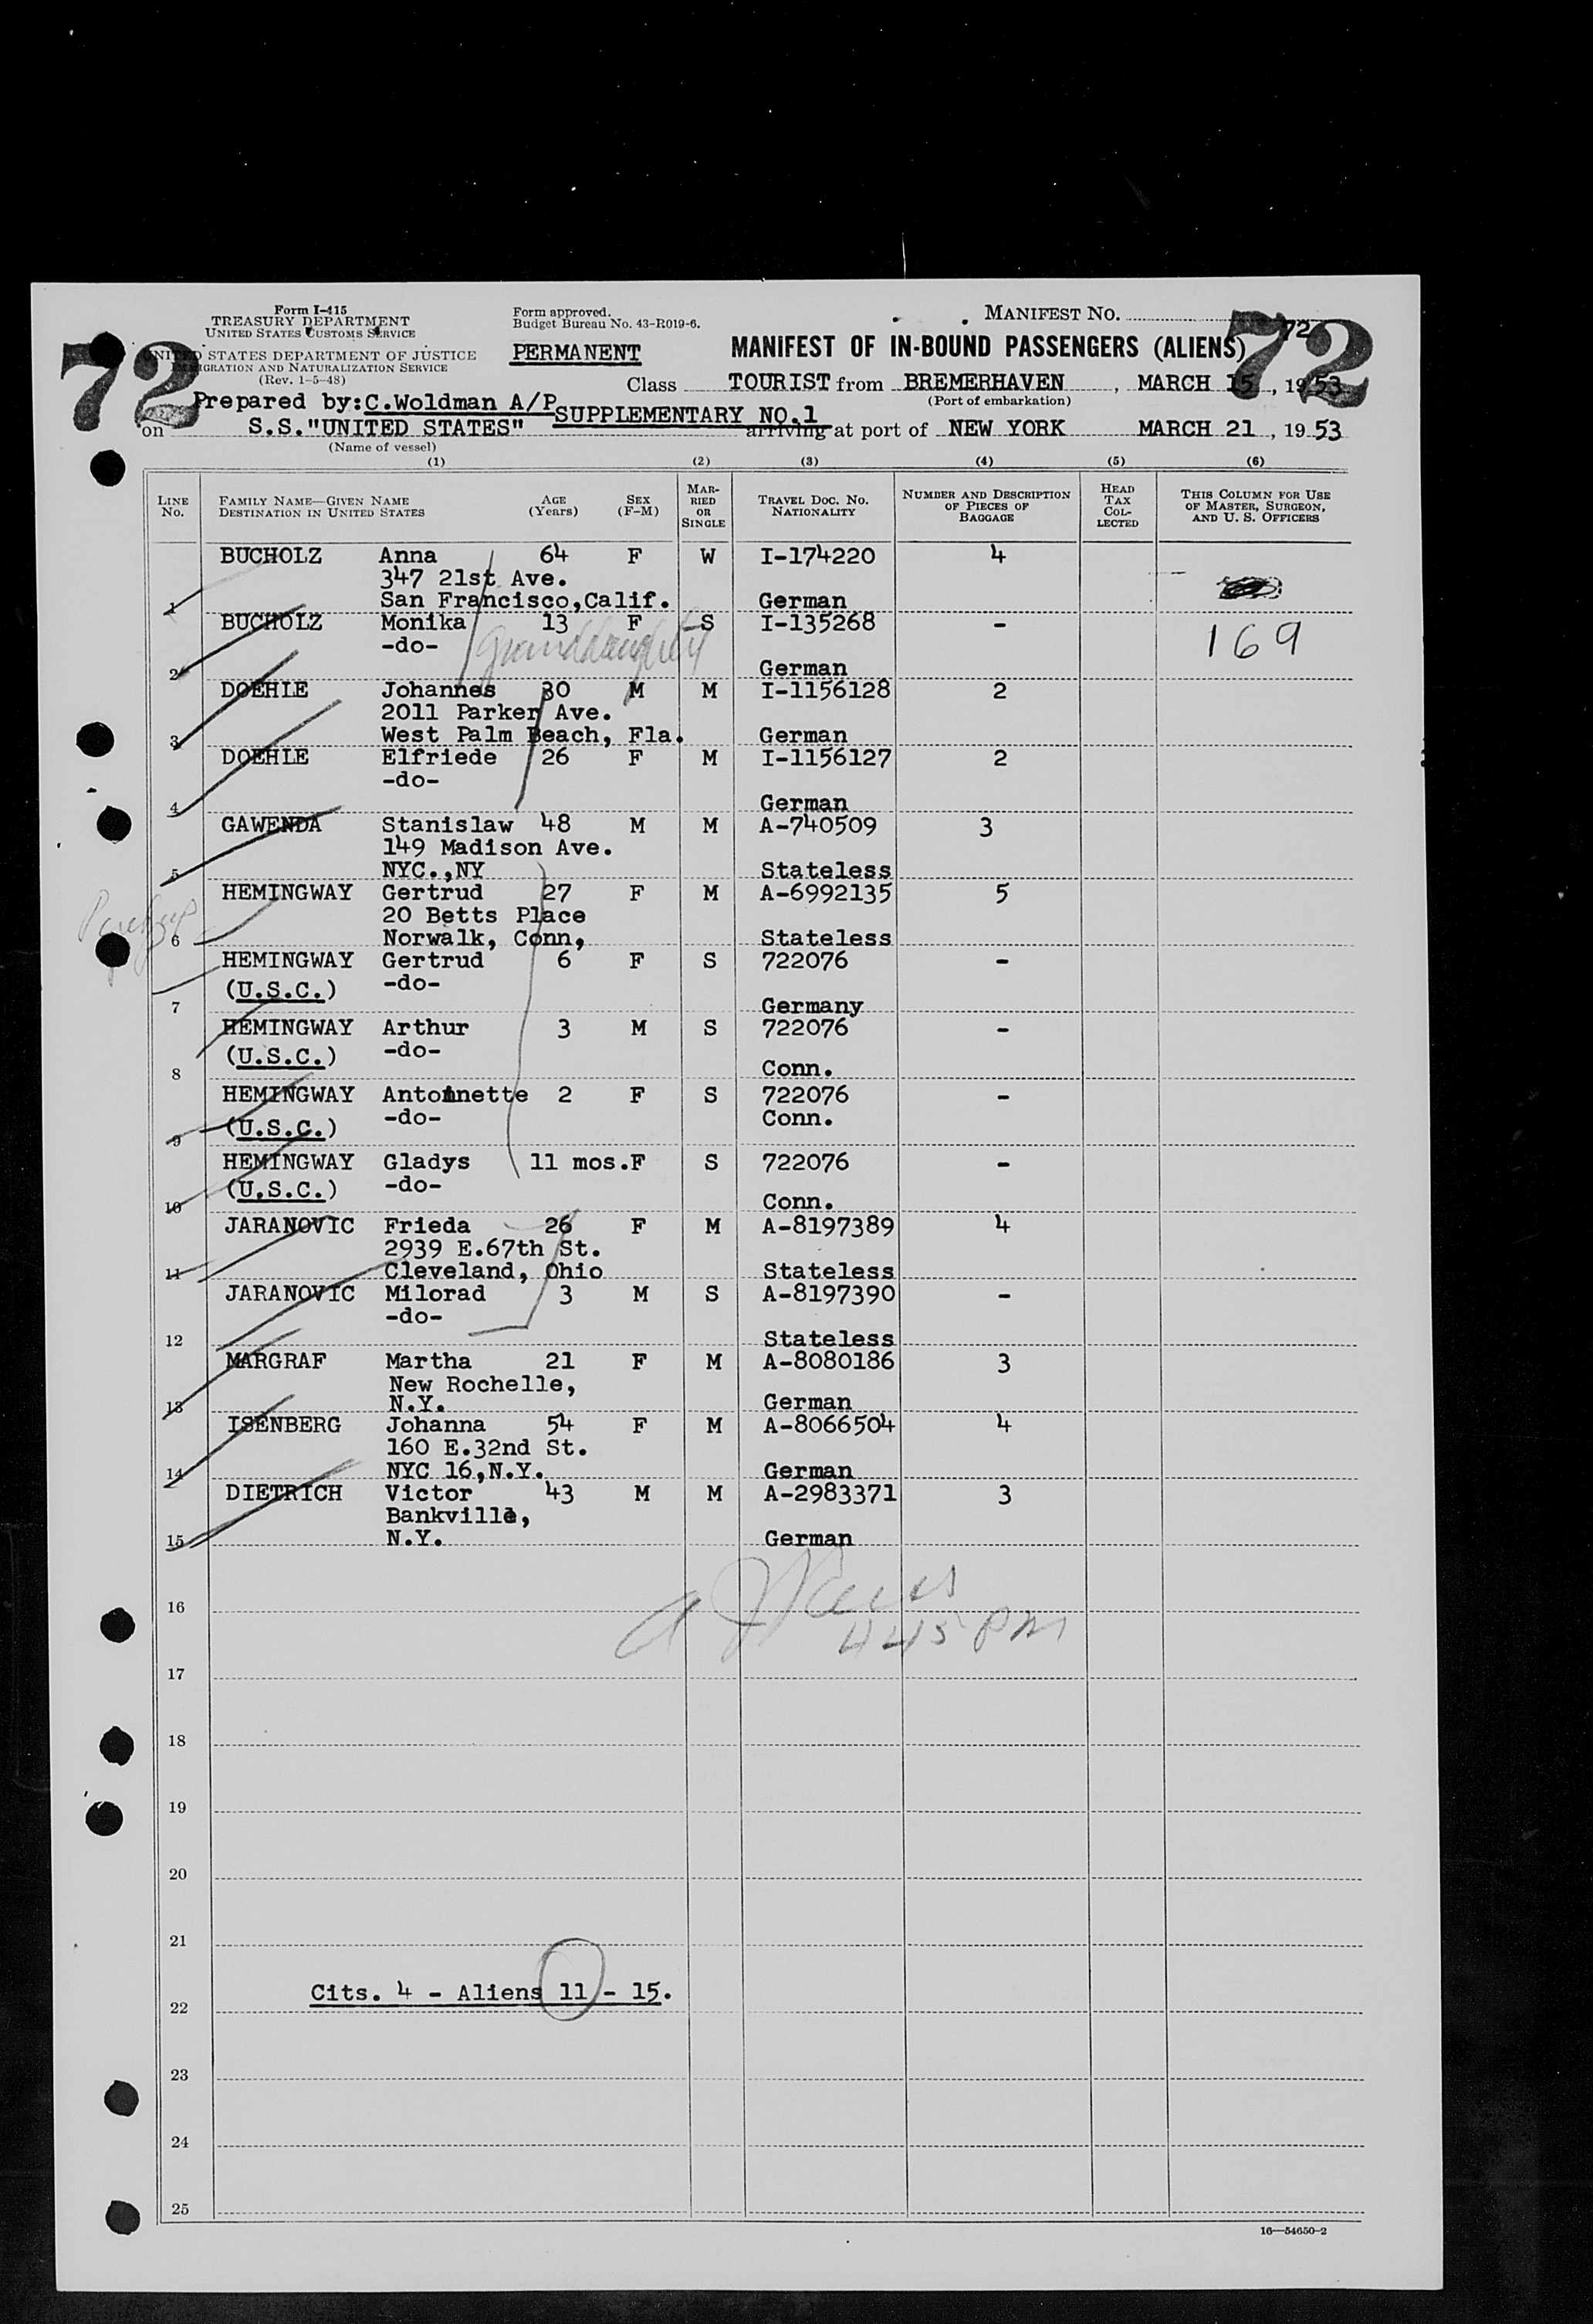 Form I-415
TREASURY DEPARTMENT
UNITED STATES CUSTOMS SERVICE
UNITED STATES DEPARTMENT OF JUSTICE
IMMIGRATION AND NATURALIZATION SERVICE
(Rev. 1-5-48)
Form approved.
Budget Bureau No. 43-R019-6.
MANIFEST NO. 72
72 72
PERMANENT
MANIFEST OF IN-BOUND PASSENGERS (ALIENS)
Class TOURIST from BREMERHAVEN, MARCH 15, 1953
(Port of embarkation)
Prepared by: C.Woldman A/P
SUPPLEMENTARY NO.1
on S.S."UNITED STATES" arriving at port of NEW YORK MARCH 21, 1953
(Name of vessel)
(1) (2) (3) (4) (5) (6)
LINE No. FAMILY NAME—GIVEN NAME DESTINATION IN UNITED STATES AGE (Years) SEX (F-M) MARRIED OR SINGLE TRAVEL DOC. NO. NATIONALITY NUMBER AND DESCRIPTION OF PIECES OF BAGGAGE HEAD TAX COLLECTED THIS COLUMN FOR USE OF MASTER, SURGEON, AND U. S. OFFICERS
BUCHOLZ Anna 64 F W I-174220 4
347 21st Ave.
1 San Francisco,Calif. German
BUCHOLZ Monika 13 F S I-135268 - 169
-do- Granddaughter
2 German
DOEHLE Johannes 30 M M I-1156128 2
2011 Parker Ave.
3 West Palm Beach, Fla. German
DOEHLE Elfriede 26 F M I-1156127 2
-do-
4 German
GAWENDA Stanislaw 48 M M A-740509 3
149 Madison Ave.
5 NYC.,NY Stateless
HEMINGWAY Gertrud 27 F M A-6992135 5
20 Betts Place
6 Norwalk, Conn, Stateless
HEMINGWAY Gertrud 6 F S 722076 -
(U.S.C.) -do-
7 Germany
HEMINGWAY Arthur 3 M S 722076 -
(U.S.C.) -do-
8 Conn.
HEMINGWAY Antoinnette 2 F S 722076 -
-do- Conn.
9 (U.S.C.)
HEMINGWAY Gladys 11 mos. F S 722076 -
(U.S.C.) -do-
10 Conn.
JARANOVIC Frieda 26 F M A-8197389 4
2939 E.67th St.
11 Cleveland, Ohio Stateless
JARANOVIC Milorad 3 M S A-8197390 -
-do-
12 Stateless
MARGRAF Martha 21 F M A-8080186 3
New Rochelle,
13 N.Y. German
ISENBERG Johanna 54 F M A-8066504 4
160 E.32nd St.
14 NYC 16,N.Y. German
DIETRICH Victor 43 M M A-2983371 3
Bankville,
15 N.Y. German
16
445 PM
17
18
19
20
21
Cits. 4 - Aliens 11 - 15.
22
23
24
25
16—54650-2